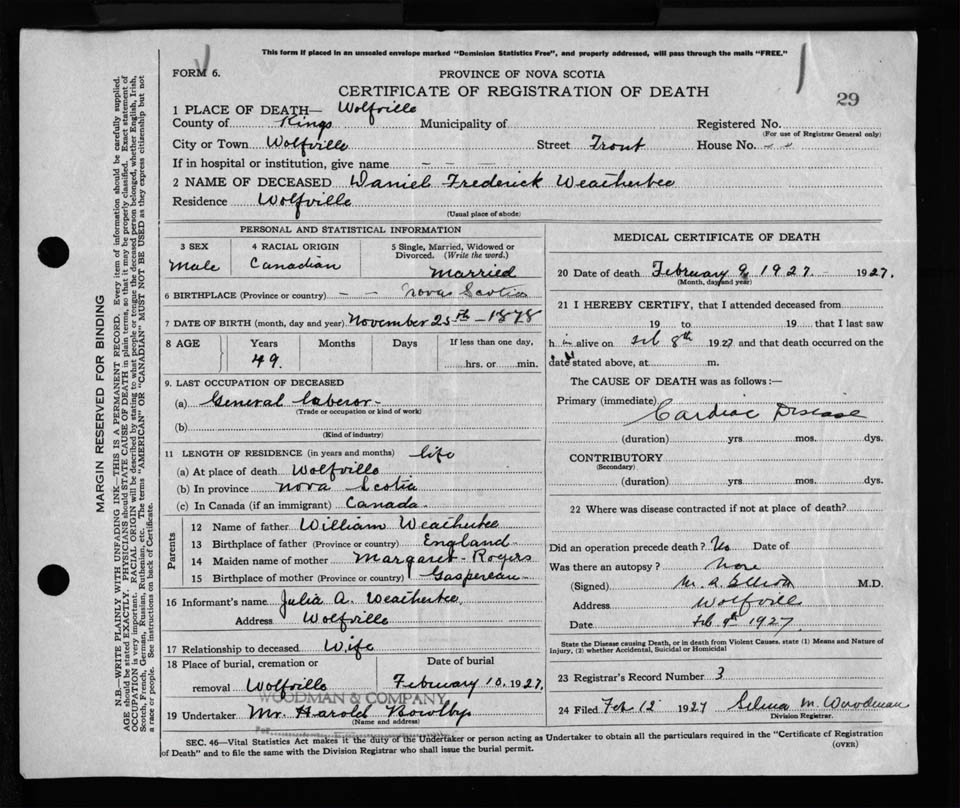 This form if placed in an unsealed envelope marked "Dominion Statistics Free", and properly addressed, will pass through the mails "FREE."
FORM 6.
PROVINCE OF NOVA SCOTIA
CERTIFICATE OF REGISTRATION OF DEATH
29
1 PLACE OF DEATH— Wolfville
County of Kings Municipality of Registered No.
(For use of Registrar General only)
City or Town Wolfville Street Front House No. - -
If in hospital or institution, give name - - -
2 NAME OF DECEASED Daniel Frederick Weatherbee
Residence Wolfville
(Usual place of abode)
PERSONAL AND STATISTICAL INFORMATION
3 SEX 4 RACIAL ORIGIN 5 Single, Married, Widowed or Divorced. (Write the word.)
Male Canadian Married
6 BIRTHPLACE (Province or country) - - Nova Scotia
7 DATE OF BIRTH (month, day and year) November 25th - 1878
8 AGE Years Months Days If less than one day,
49. hrs. or min.
9. LAST OCCUPATION OF DECEASED
(a) General Laberor -
(Trade or occupation or kind of work)
(b)
(Kind of industry)
11 LENGTH OF RESIDENCE (in years and months) life
(a) At place of death Wolfville
(b) In province Nova Scotia
(c) In Canada (if an immigrant) Canada
Parents
12 Name of father William Weatherbee
13 Birthplace of father (Province or country) England
14 Maiden name of mother Margaret Rogers
15 Birthplace of mother (Province or country) Gaspereau
16 Informant's name Julia A. Weatherbee
Address Wolfville
17 Relationship to deceased Wife
18 Place of burial, cremation or removal Wolfville
Date of burial February 10. 1927.
WOODMAN & COMPANY
19 Undertaker Mr. Harold Bowlby
(Name and address)
Per
MEDICAL CERTIFICATE OF DEATH
20 Date of death February 9, 1927 - 1927.
(Month, day and year)
21 I HEREBY CERTIFY, that I attended deceased from
19 to 19 that I last saw
h im alive on Feb 8th 1927 and that death occurred on the
date stated above, at m.
The CAUSE OF DEATH was as follows:—
Primary (immediate) Cardiac Disease
(duration) yrs. mos. dys.
CONTRIBUTORY
(Secondary)
(duration) yrs. mos. dys.
22 Where was disease contracted if not at place of death?
Did an operation precede death? No Date of
Was there an autopsy? None
(Signed) M. A. Elliott M.D.
Address Wolfville
Date Feb 9th 1927
State the Disease causing Death, or in death from Violent Causes, state (1) Means and Nature of
Injury, (2) whether Accidental, Suicidal or Homicidal
23 Registrar's Record Number 3
24 Filed Feb 12 1927 Selina M. Woodman
Division Registrar.
SEC. 46—Vital Statistics Act makes it the duty of the Undertaker or person acting as Undertaker to obtain all the particulars required in the "Certificate of Registration
of Death" and to file the same with the Division Registrar who shall issue the burial permit.
(OVER)
MARGIN RESERVED FOR BINDING
N.B.—WRITE PLAINLY WITH UNFADING INK—THIS IS A PERMANENT RECORD. Every item of information should be carefully supplied.
AGE should be stated EXACTLY. PHYSICIANS should STATE CAUSE OF DEATH in plain terms, so that it may be properly classified. Exact statement of
OCCUPATION is very important. RACIAL ORIGIN will be described by stating to what people or tongue the deceased person belonged, whether English, Irish,
Scotch, French, German, Russian, Ruthenian, etc. The terms "AMERICAN" OR "CANADIAN" MUST NOT BE USED as they express citizenship but not
a race or people. See instructions on back of Certificate.